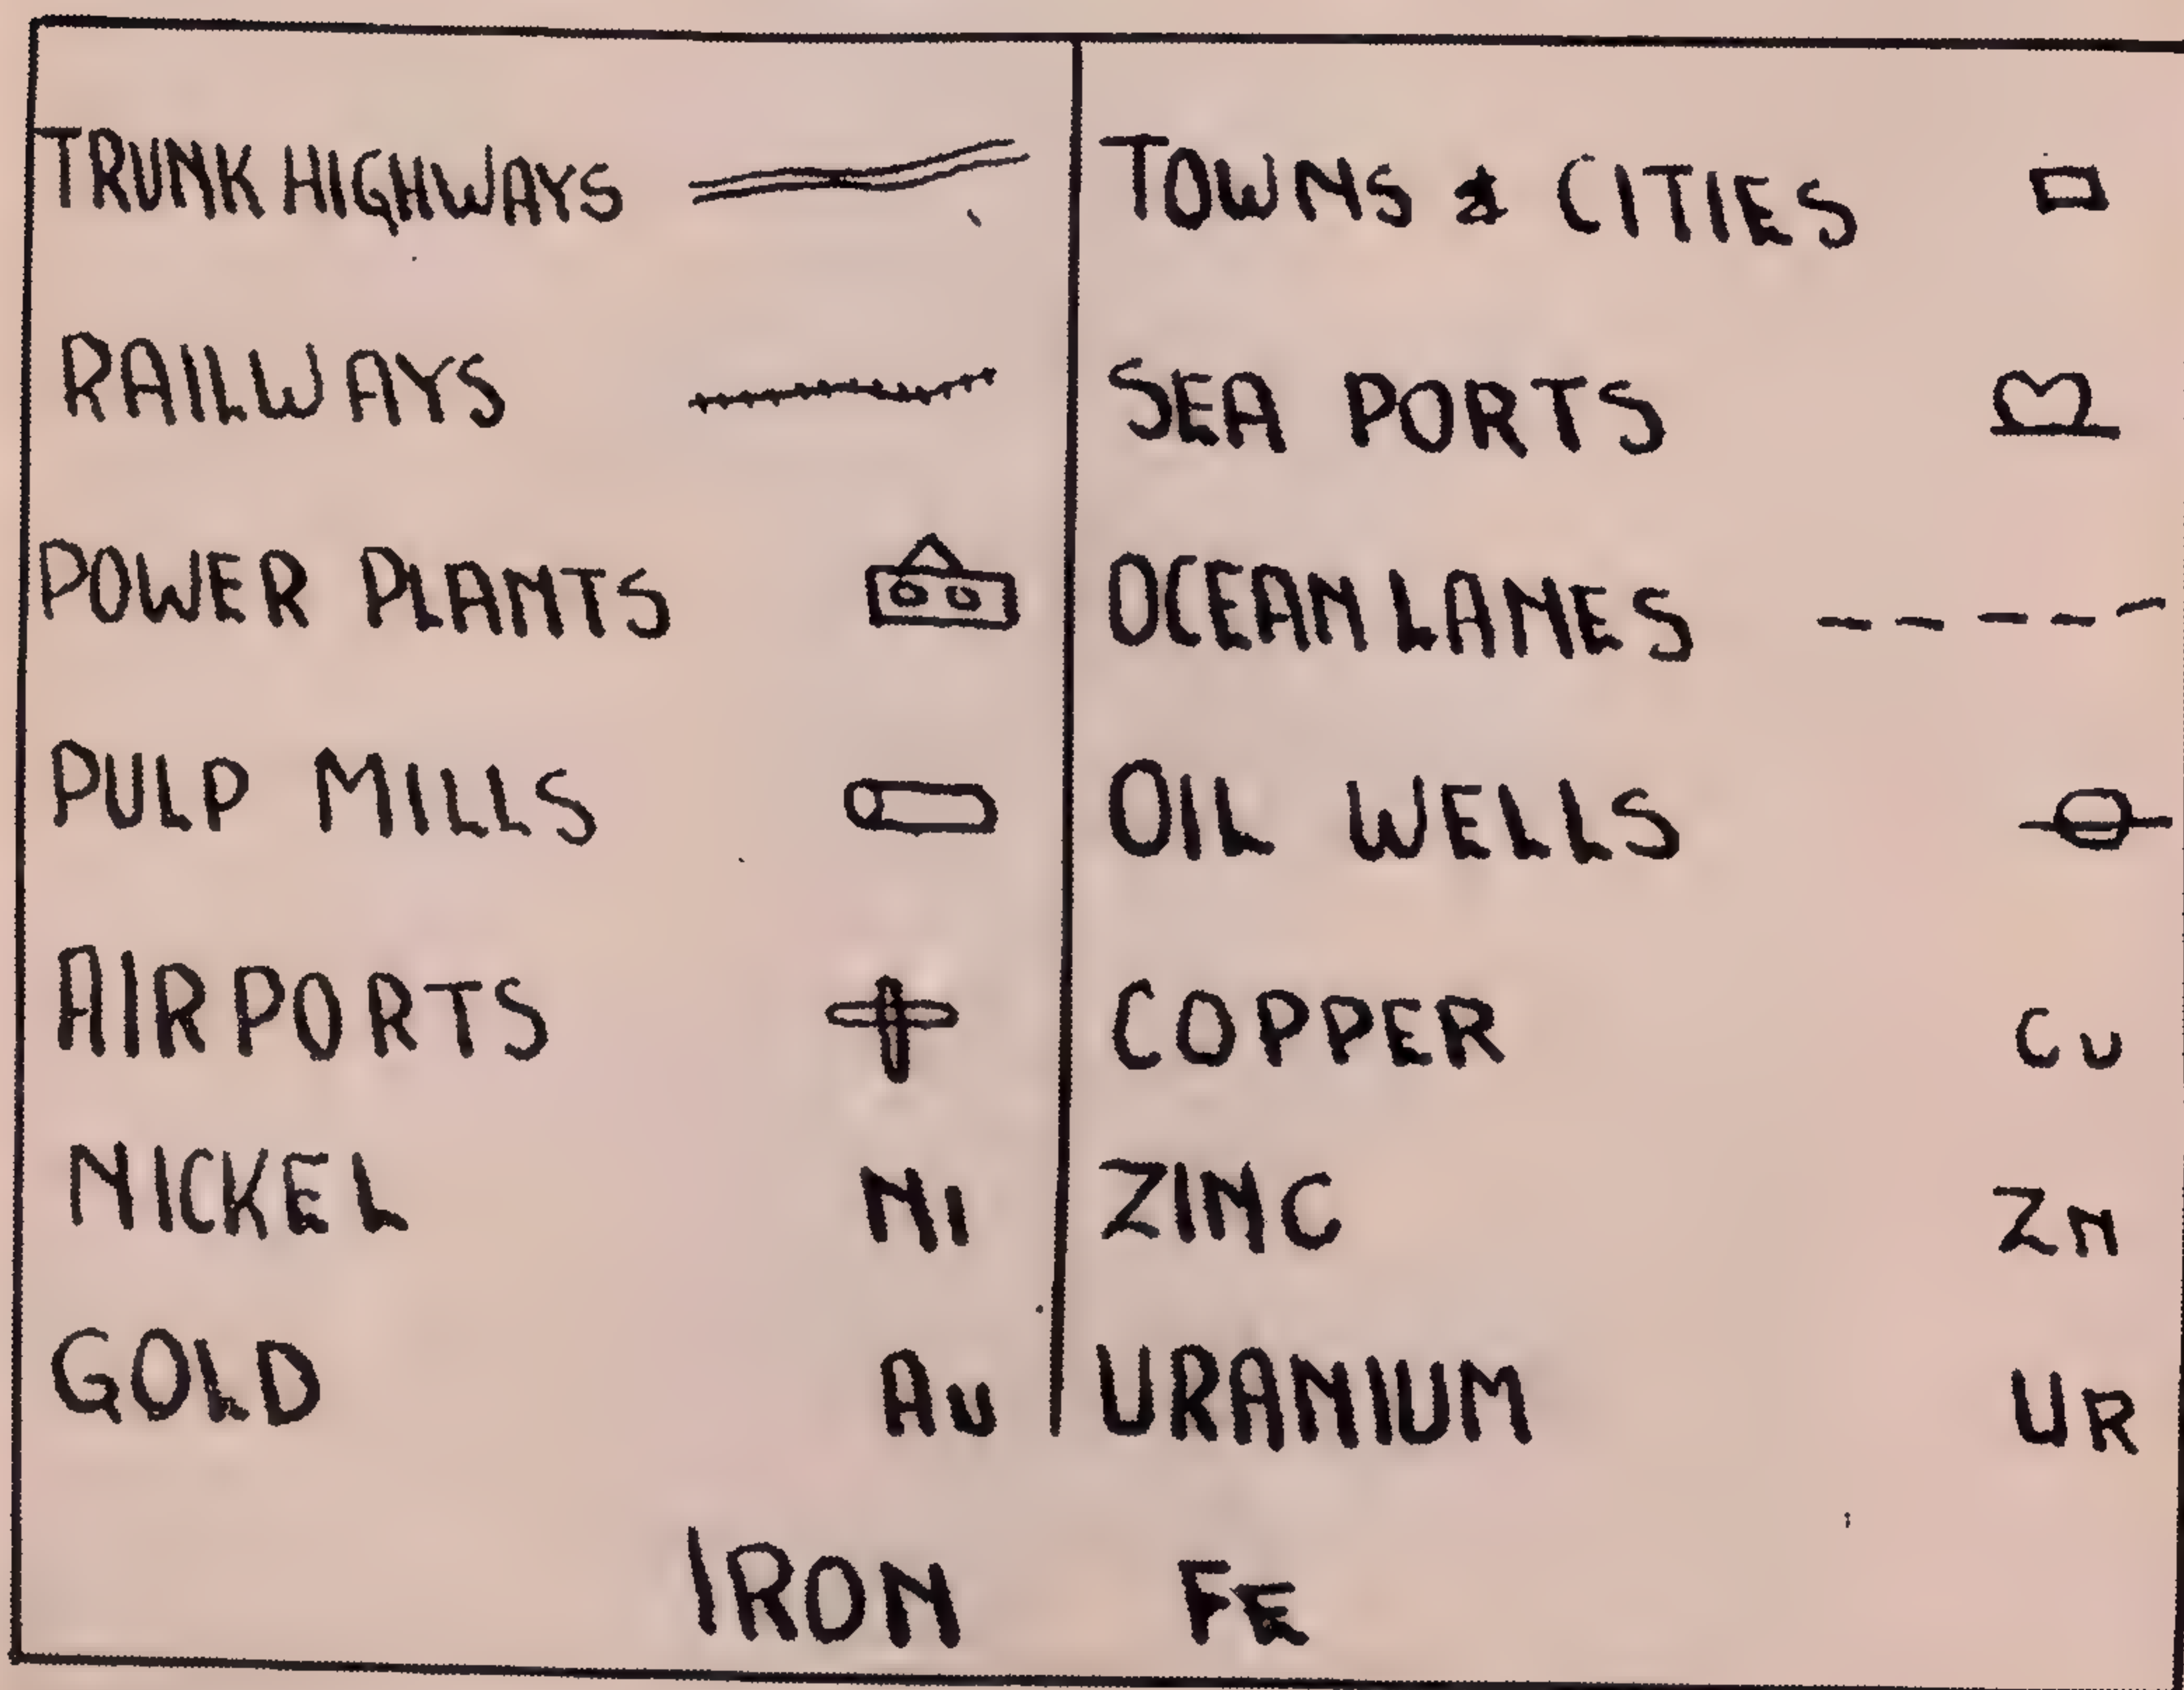 TRUNK HIGHWAYS
RAILWAYS
POWER PLANTS
PULP MILLS
AIRPORTS
NICKEL Ni
GOLD Au
TOWNS & CITIES
SEA PORTS
OCEAN LANES
OIL WELLS
COPPER Cu
ZINC Zn
URANIUM UR
IRON FE